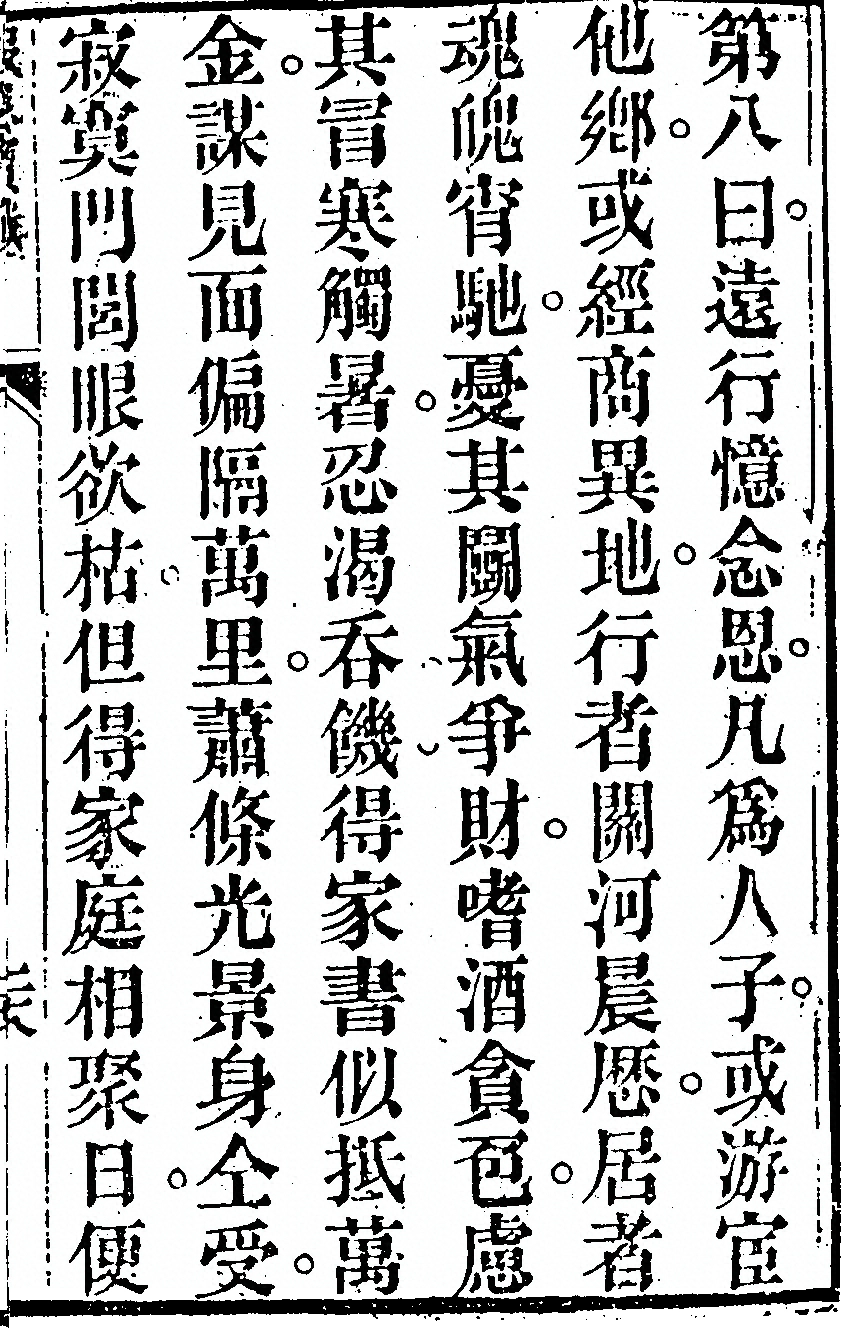 第八曰遠行憶念恩凡爲人子或游宦
他鄕或經商異地行者關河晨歴居者
魂魄宵馳憂其鬬氣爭財嗜酒貪色慮
其冒寒觸暑忍渴吞饑得家書似抵萬
金謀見面偏隔萬里蕭條光景身仝受
寂寞門閭眼欲枯但得家庭相聚日便